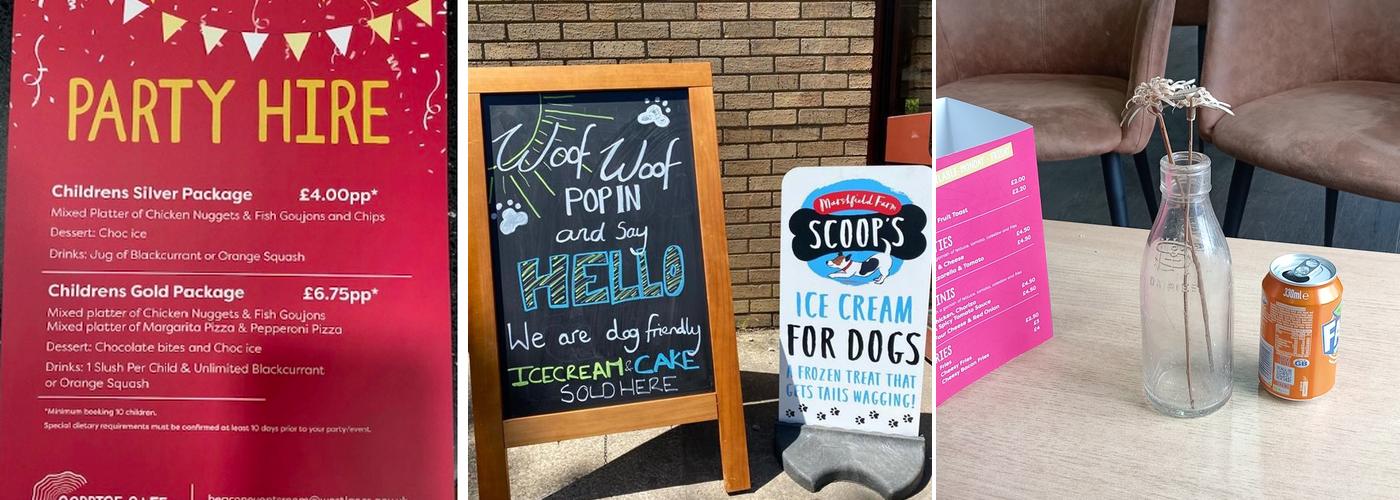 PARTY HIRE
Childrens Silver Package £4.00pp*
Mixed Platter of Chicken Nuggets & Fish Goujons and Chips
Dessert: Choc ice
Drinks: Jug of Blackcurrant or Orange Squash
Childrens Gold Package £6.75pp*
Mixed platter of Chicken Nuggets & Fish Goujons
Mixed platter of Margarita Pizza & Pepperoni Pizza
Dessert: Chocolate bites and Choc ice
Drinks: 1 Slush Per Child & Unlimited Blackcurrant
or Orange Squash
*Minimum booking 10 children.
Special dietary requirements must be confirmed at least 10 days prior to your party/event.
Woof Woof
POP IN
and say
HELLO
We are dog friendly
ICECREAM & CAKE
SOLD HERE
Marshfield Farm
SCOOP'S
ICE CREAM
FOR DOGS
A FROZEN TREAT THAT
GETS TAILS WAGGING!
MONDAY - FRIDAY
£2.00
£2.20
Fruit Toast
£4.50
£4.50
& Cheese
& Tomato
£4.50
Chicken, Chorizo £4.50
Spicy Tomato Sauce £4.50
Cheese & Red Onion
£2.50
£3
Fries £4
Cheesy Fries
Cheesy Bacon Fries
DAIRIES
330ml e
GB